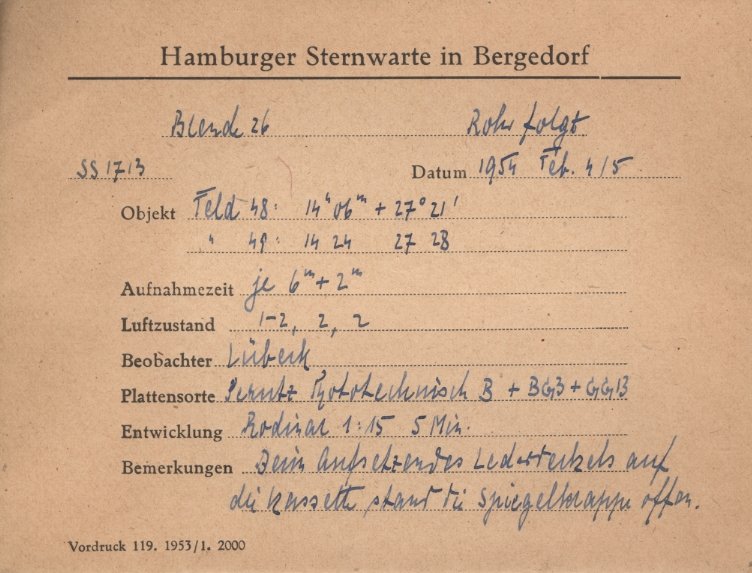 Hamburger Sternwarte in Bergedorf
Blende 26 Rohr folgt
SS 1713 Datum 1954 Feb. 4/5
Objekt Feld 48: 14ʰ06ᵐ + 27°21'
" 49: 14 24 27 28
Aufnahmezeit je 6ᵐ + 2ᵐ
Luftzustand 1-2, 2, 2
Beobachter Lübeck
Plattensorte Perutz Phototechnisch B + BG3 + GG13
Entwicklung Rodinal 1:15 5 Min.
Bemerkungen Beim Aufsetzen des Lederdeckels auf
die Kassette stand die Spiegelklappe offen.
Vordruck 119. 1953/1. 2000